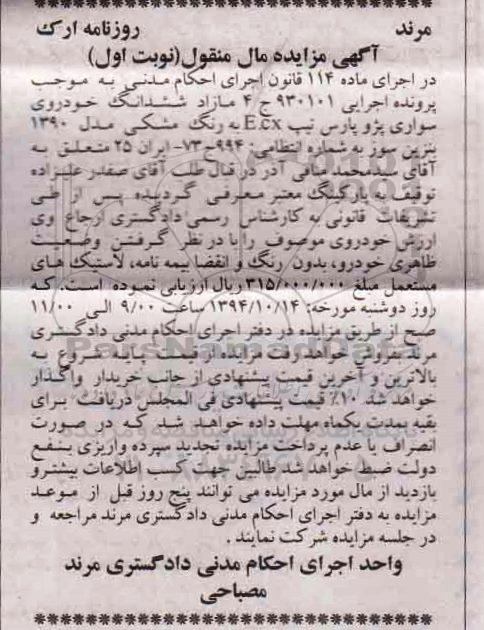 مرند
روزنامه ارک
آگهی مزایده مال منقول(نوبت اول)
در اجرای ماده ۱۱۴ قانون اجرای احکام مدنی به موجب
پرونده اجرایی ۹۳۰۱۰۱ ج ۴ مازاد ششدانگ خودروی
سواری پژو پارس تیپ E.cx به رنگ مشکی مدل ۱۳۹۰
بنزین سوز به شماره انتظامی: ۹۹۴ج۷۳- ایران ۲۵ متعلق به
آقای سیدمحمد صافی آذر در قبال طلب آقای صفدر علیزاده
توقیف به پارکینگ معتبر معرفی گردیده پس از طی
تشریفات قانونی به کارشناس رسمی دادگستری ارجاع وی
ارزش خودروی موصوف را با در نظر گرفتن وضعیت
ظاهری خودرو، بدون رنگ و انقضا بیمه نامه، لاستیک های
مستعمل مبلغ ۳۱۵/۰۰۰/۰۰۰ ریال ارزیابی نموده است. که
روز دوشنبه مورخه: ۱۳۹۴/۱۰/۱۴ ساعت ۹/۰۰ الی ۱۱/۰۰
صبح از طریق مزایده در دفتر اجرای احکام مدنی دادگستری
مرند بفروش خواهد رفت مزایده از قیمت پایه شروع به
بالاترین و آخرین قیمت پیشنهادی از جانب خریدار واگذار
خواهد شد ۱۰٪ قیمت پیشنهادی فی المجلس دریافت برای
بقیه بمدت یکماه مهلت داده خواهد شد که در صورت
انصراف یا عدم پرداخت مزایده تجدید سپرده واریزی بنفع
دولت ضبط خواهد شد طالبین جهت کسب اطلاعات بیشترو
بازدید از مال مورد مزایده می توانند پنج روز قبل از موعد
مزایده به دفتر اجرای احکام مدنی دادگستری مرند مراجعه و
در جلسه مزایده شرکت نمایند .
واحد اجرای احکام مدنی دادگستری مرند
مصباحی